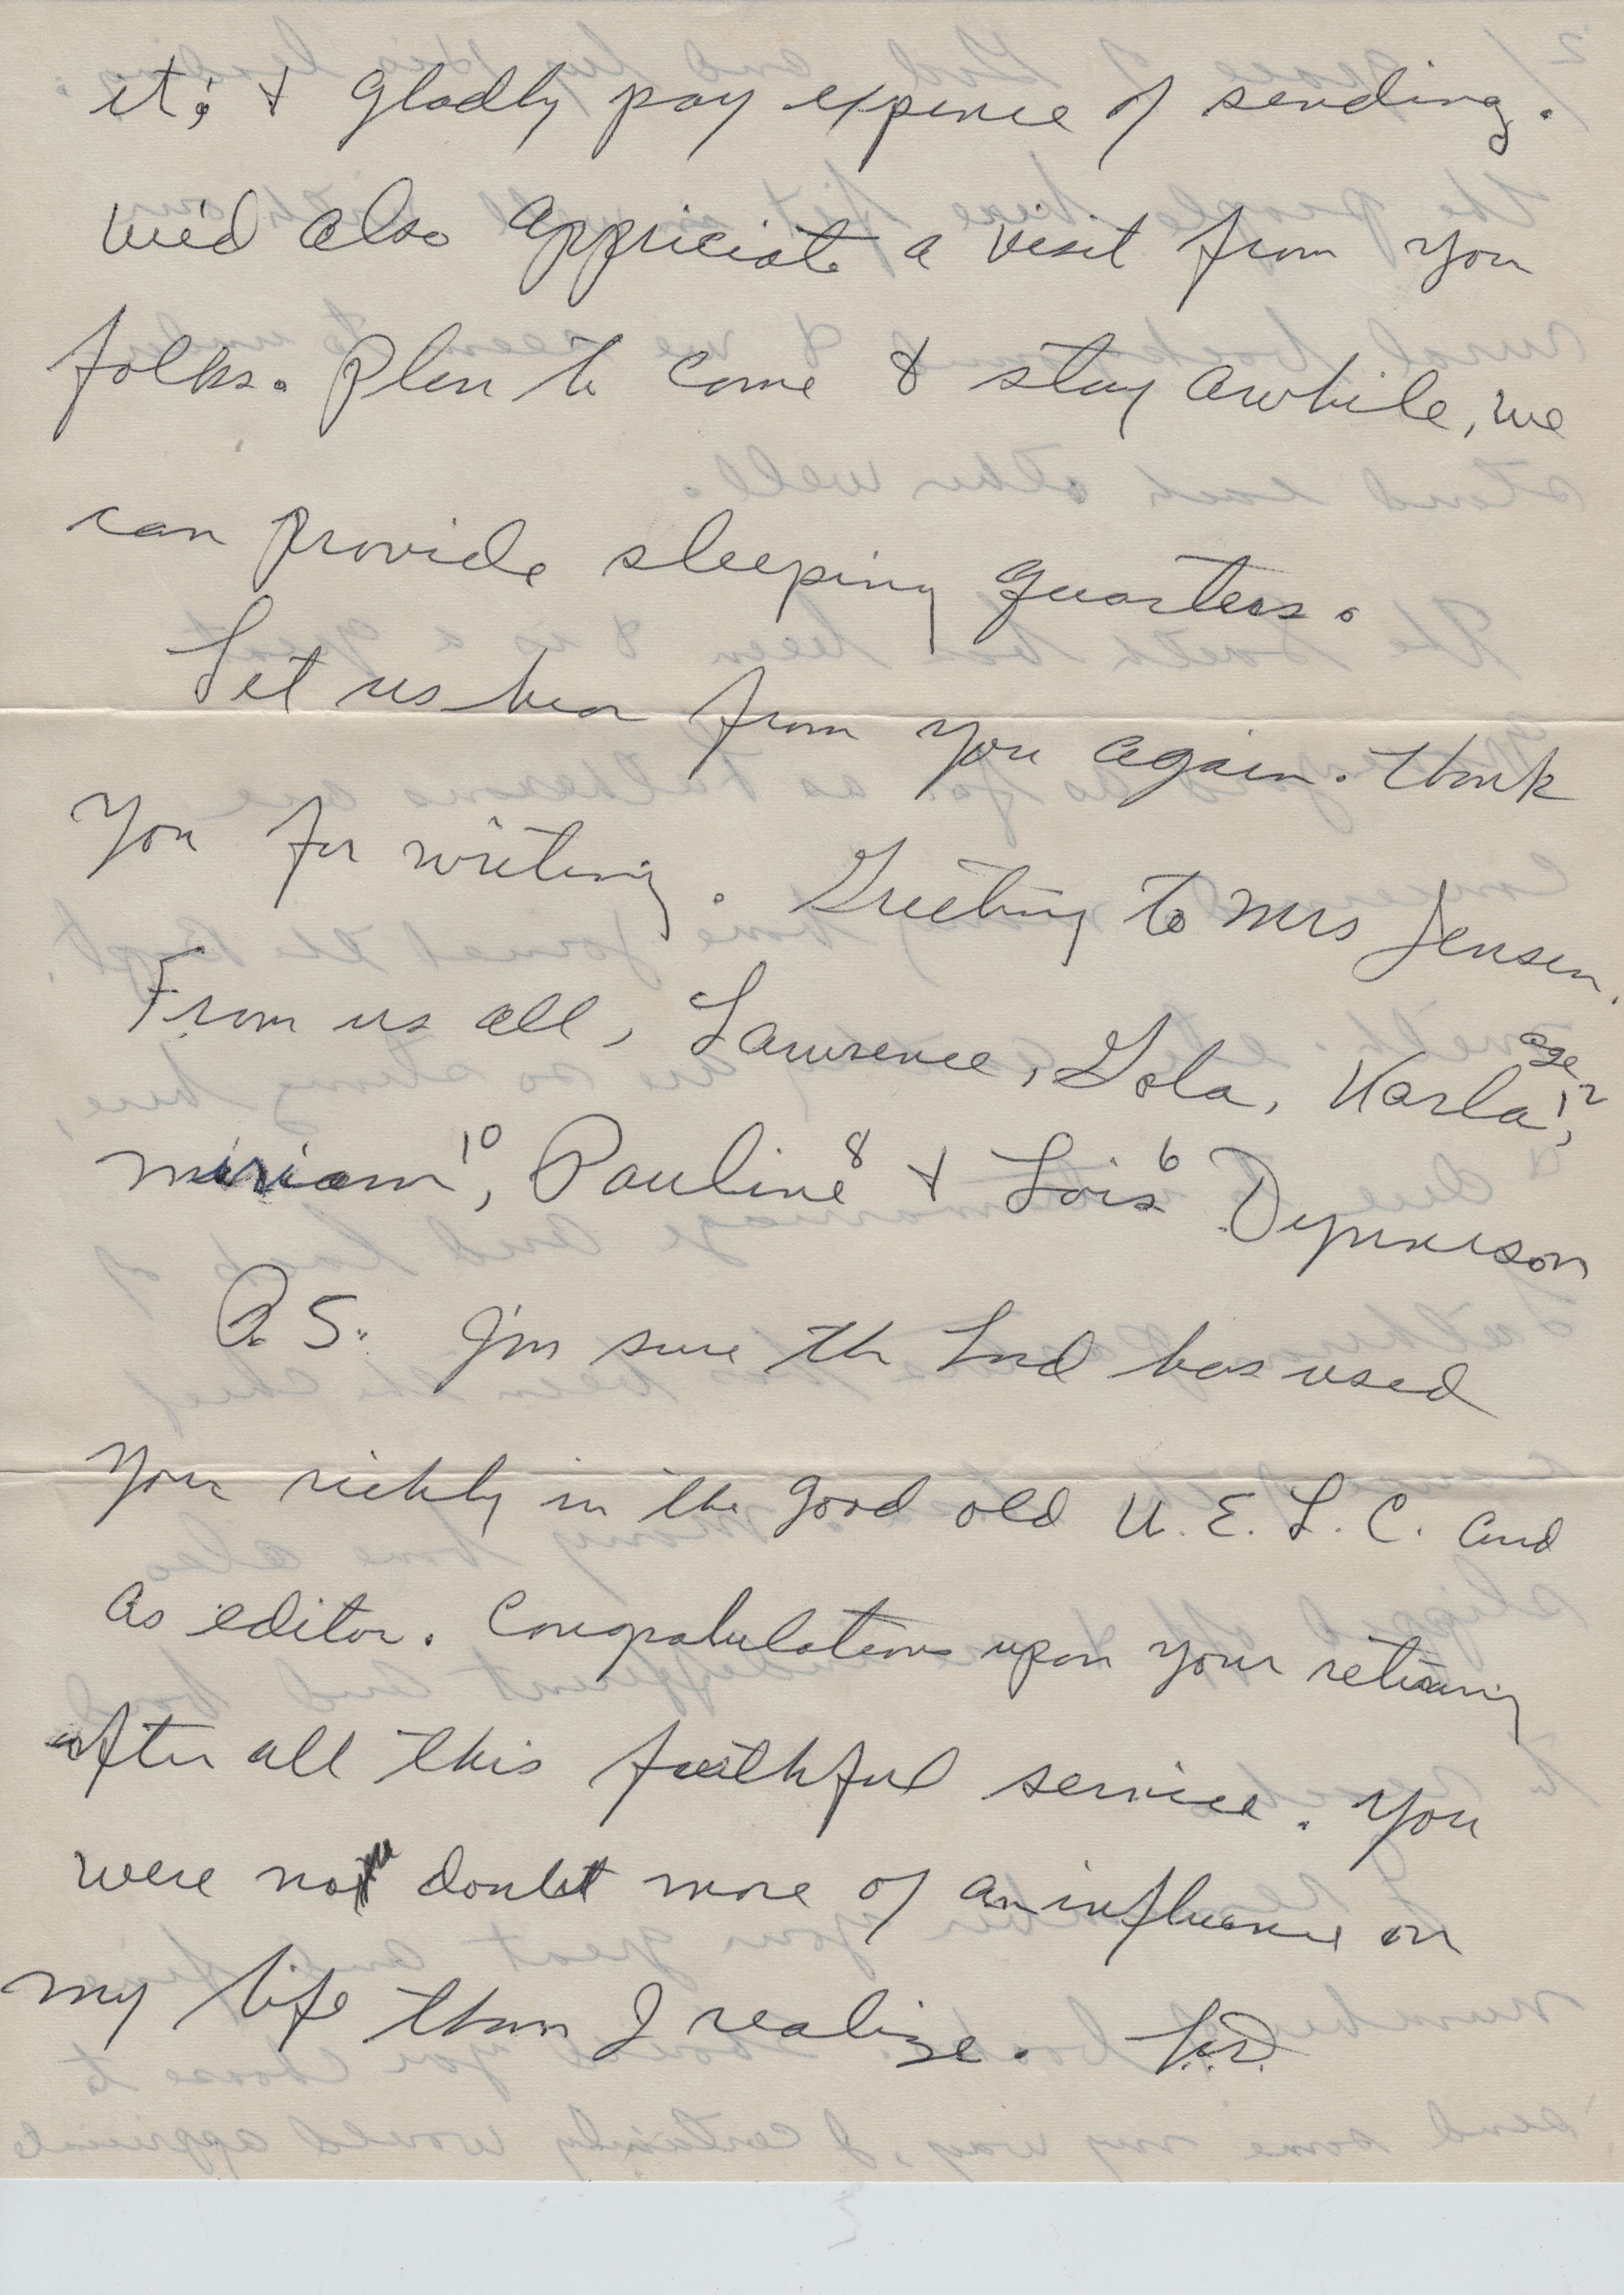 it; & gladly pay expence of sending.
We'd also appriciate a visit from you
folks. Plan to come & stay awhile, we
can provide sleeping quarters.
Let us hear from you again. Thank
you for writing. Greeting to Mrs Jensen.
From us all, Lawrence, Lola, Karla age 12,
Miriam 10, Pauline 8 & Lois 6
P.S. I'm sure the Lord has used
your richly in the good old U.E.L.C. and
as editor. Congratulations upon your retiring
after all this faithful service. You
were no doubt more of an influence on
my life than I realize. L.D.